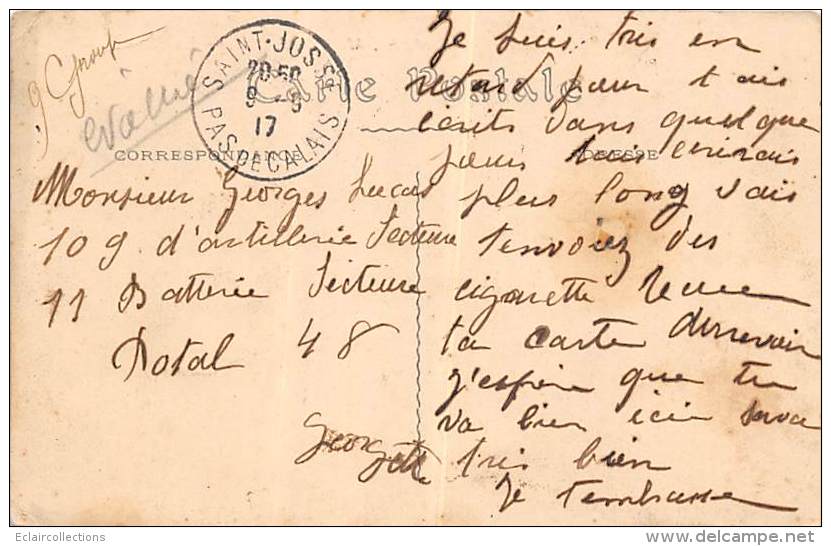 9 Group
évacué
SAINT-JOSSE
20 50
9 - 5
17
PAS DE CALAIS
Carte Postale
CORRESPONDANCE
ADRESSE
Monsieur Georges Lucas
109 d'artillerie Secteure
11 Batterie Secteure
Postal 48
Je suis tris en
retard pour t
ecrits dans quelque
jours
plus long vais
tenvoiez des
cigarette
ta carte
j'espère que tu
va bien icie sava
tris bien
Je tembrasse
Georgette
Eclaircollections
www.delcampe.net